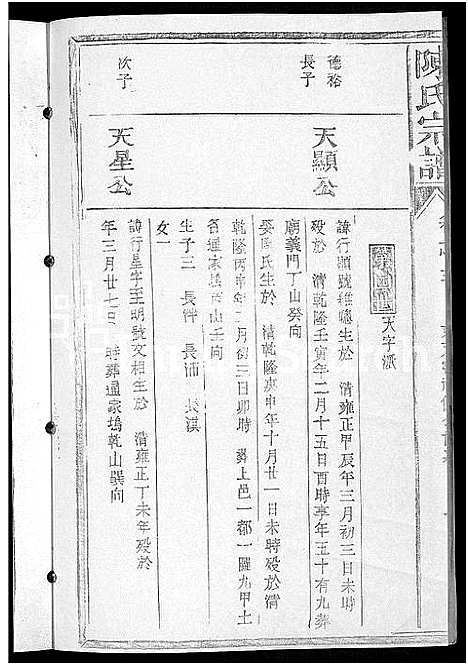 陳氏宗譜
天字派
德裕
長子
天顯公
諱行顯號維嶢生於 清雍正甲辰年三月初三日未時
殁於 清乾隆壬寅年二月十五日酉時享年五十有九葬
廟義門丁山癸向
娶陶氏生於 清乾隆庚申年十月廿一日未時殁於清
乾隆丙申年 月初三日卯時 葬上邑一都一圖九甲土
名 家 丙山壬向
生子三 長 長沛 長漢
女一
次子
天星公
諱行星字王明號文相生於 清雍正丁未年殁於
年三月廿七日 時葬通家塢乾山巽向